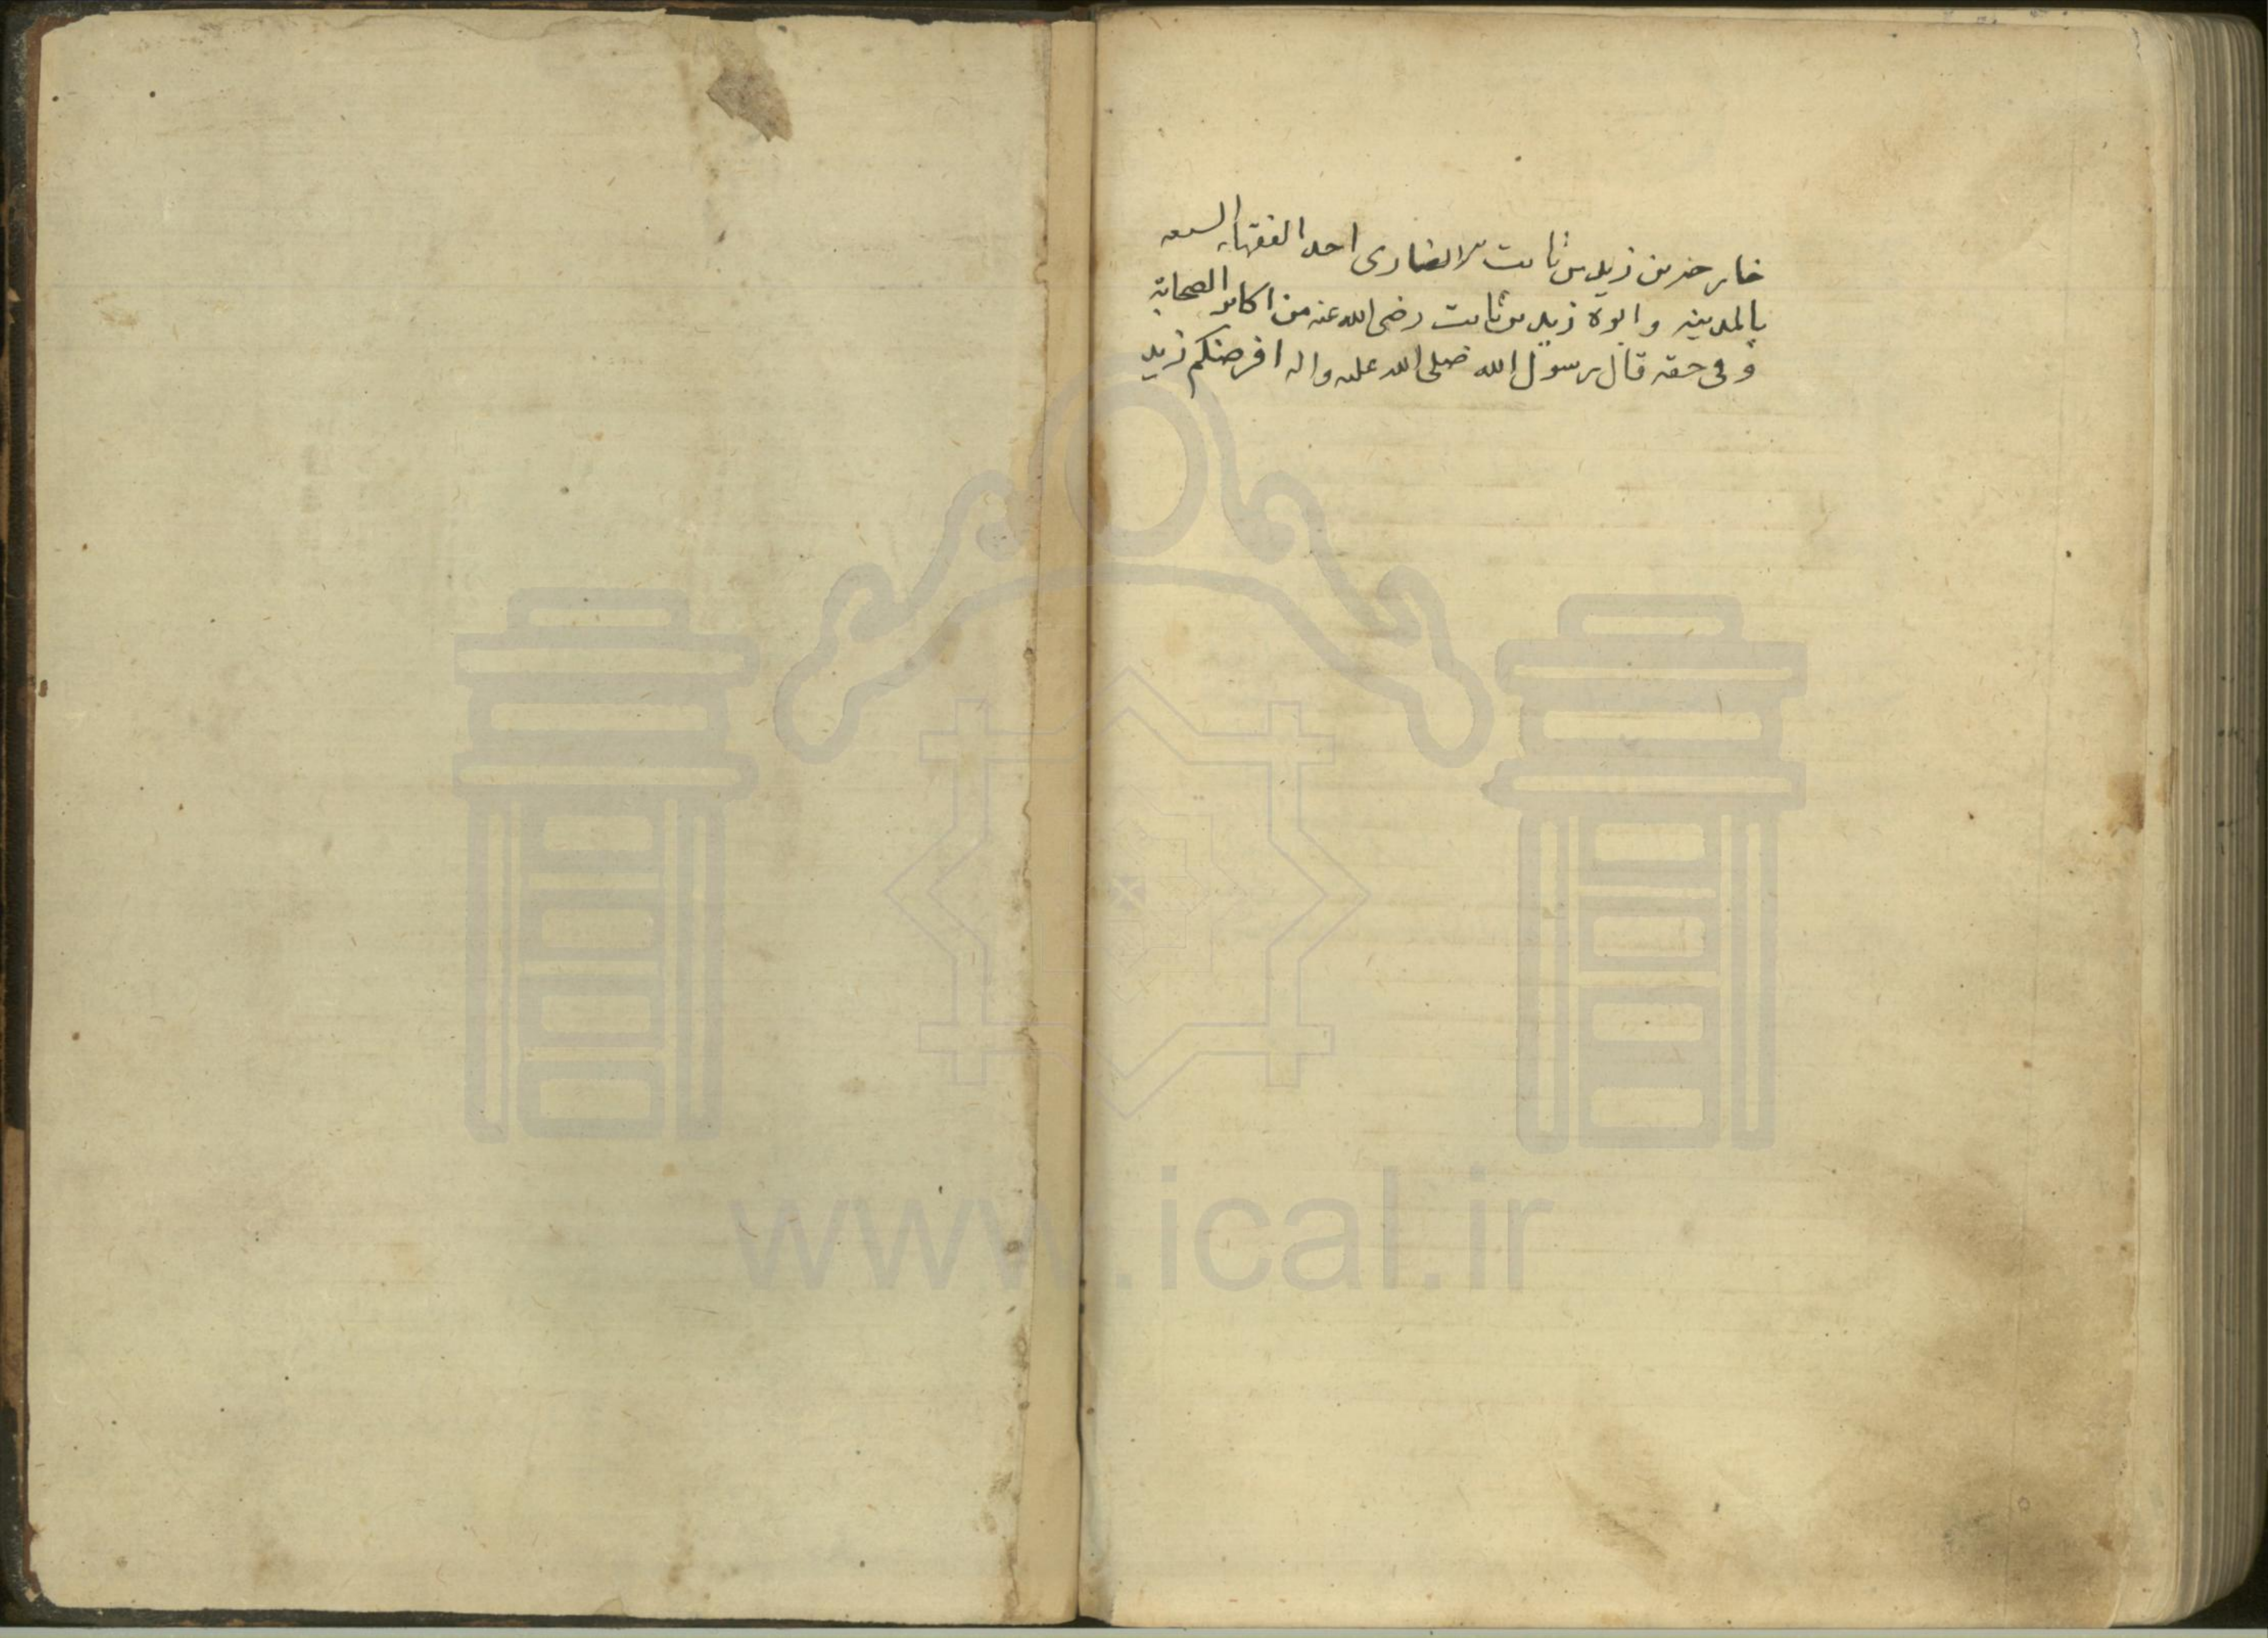 خارجه بن زيد بن ثابت الانصارى احد الفقهاء السبعه
بالمدينه و ابوه زيد بن ثابت رضى الله عنه من اكابر الصحابة
و فى حقه قال رسول الله صلى الله عليه واله افرضكم زيد
www.ical.ir